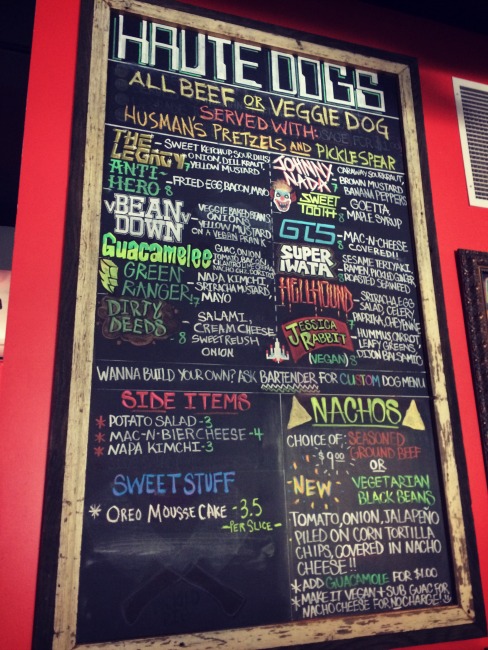 HAUTE DOGS
ALL BEEF OR VEGGIE DOG
SERVED WITH:
HUSMAN'S PRETZELS AND PICKLE SPEAR
THE LEGACY 7 - SWEET KETCHUP, SOUR DILLS
ONION, DILL KRAUT,
YELLOW MUSTARD
ANTI-HERO 8 FRIED EGG, BACON, MAYO
VBEAN DOWN 7 - VEGGIE BAKED BEANS
ONIONS
YELLOW MUSTARD
ON A VEGAN FRANK
GUACAMELEE 8 GUAC, ONION,
TOMATO,
CILANTRO,
NACHO
GREEN RANGER 7 - NAPA KIMCHI,
SRIRACHA MUSTARD,
MAYO
DIRTY DEEDS 8 SALAMI,
CREAM CHEESE
SWEET RELISH
ONION
JOHNNY NADA 7 CARAWAY SOURKRAUT,
BROWN MUSTARD
BANANA PEPPERS
SWEET TOOTH 8 - GOETTA
MAPLE SYRUP
GTS 8 - MAC-N-CHEESE
COVERED!!
SUPER IWATA 8 SESAME TERIYAKI,
RAMEN, PICKLED GINGER
ROASTED SEAWEED
HELLHOUND - SRIRACHA EGG
SALAD, CELERY,
PAPRIKA, CHEYENNE
JESSICA RABBIT (VEGAN) 8 - HUMMUS, CARROT
LEAFY GREENS,
DIJON BALSAMIC
WANNA BUILD YOUR OWN? ASK BARTENDER FOR CUSTOM DOG MENU
SIDE ITEMS
* POTATO SALAD - 3
* MAC-N-BIERCHEESE - 4
* NAPA KIMCHI - 3
SWEET STUFF
* OREO MOUSSE CAKE - 3.5
- PER SLICE -
NACHOS
CHOICE OF: SEASONED
$9.00 GROUND BEEF
OR
- NEW - VEGETARIAN
BLACK BEANS
TOMATO, ONION, JALAPEÑO
PILED ON CORN TORTILLA
CHIPS, COVERED IN NACHO
CHEESE!!
* ADD GUACAMOLE FOR $1.00
* MAKE IT VEGAN & SUB GUAC FOR
NACHO CHEESE FOR NO CHARGE!